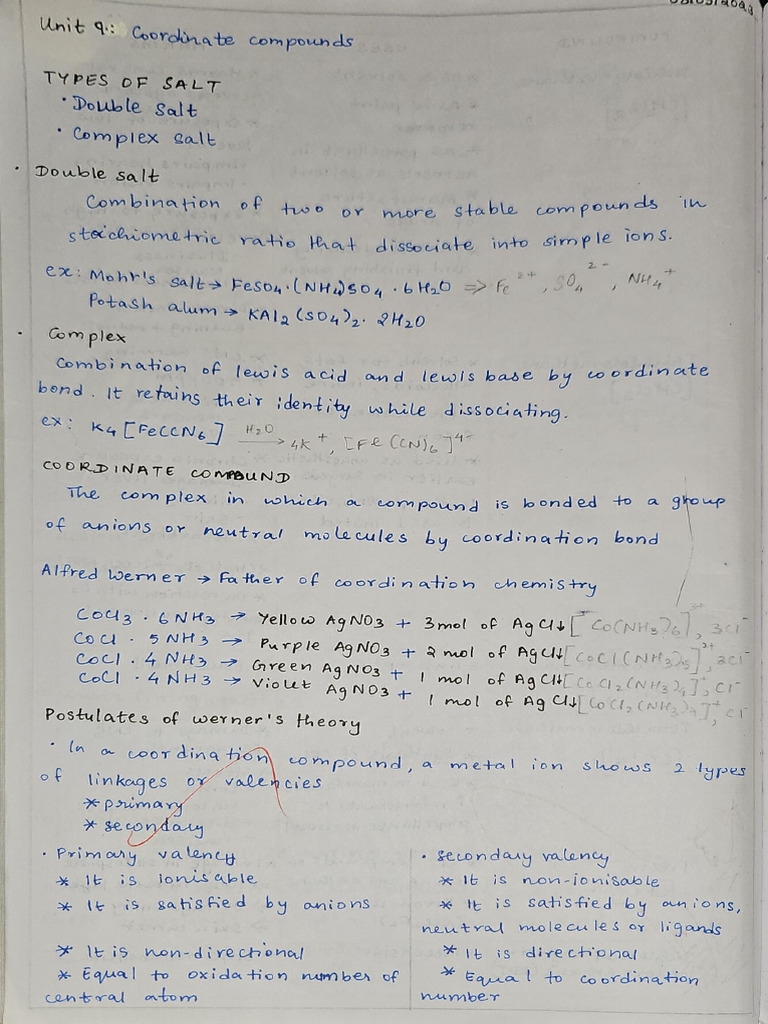 03/05/2023
Unit 9: Coordinate compounds
TYPES OF SALT
• Double salt
• Complex salt
• Double salt
Combination of two or more stable compounds in
stoichiometric ratio that dissociate into simple ions.
ex: Mohr's salt → FeSO4·(NH4)SO4·6H2O ⇒ Fe²⁺, SO4²⁻, NH4⁺
Potash alum → KAl2(SO4)2·2H2O
• Complex
Combination of lewis acid and lewis base by coordinate
bond. It retains their identity while dissociating.
ex: K4[Fe(CN6] H2O→ 4K⁺, [Fe(CN)6]⁴⁻
COORDINATE COMPOUND
The complex in which a compound is bonded to a group
of anions or neutral molecules by coordination bond
Alfred Werner → Father of coordination chemistry
CoCl3·6NH3 → Yellow AgNO3 + 3mol of AgCl↓ [Co(NH3)6]³⁺, 3Cl⁻
CoCl·5NH3 → Purple AgNO3 + 2 mol of AgCl↓ [CoCl(NH3)5]²⁺, 3Cl⁻
CoCl·4NH3 → Green AgNO3 + 1 mol of AgCl↓ [CoCl2(NH3)4]⁺, Cl⁻
CoCl·4NH3 → Violet AgNO3 + 1 mol of AgCl↓ [CoCl2(NH3)4]⁺, Cl
Postulates of werner's theory
• In a coordination compound, a metal ion shows 2 types
of linkages or valencies
* primary
* secondary
• Primary valency
* It is ionisable
* It is satisfied by anions
* It is non-directional
* Equal to oxidation number of
central atom
• secondary valency
* It is non-ionisable
* It is satisfied by anions,
neutral molecules or ligands
* It is directional
* Equal to coordination
number